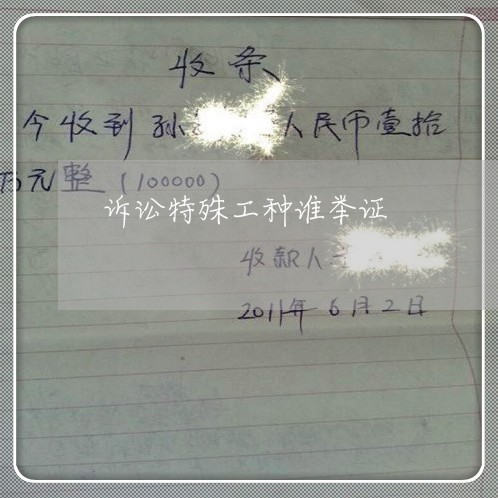 收条
今收到孙 人民币壹拾
万元整（100000）
诉讼特殊工种谁举证
收款人
2011年6月2日